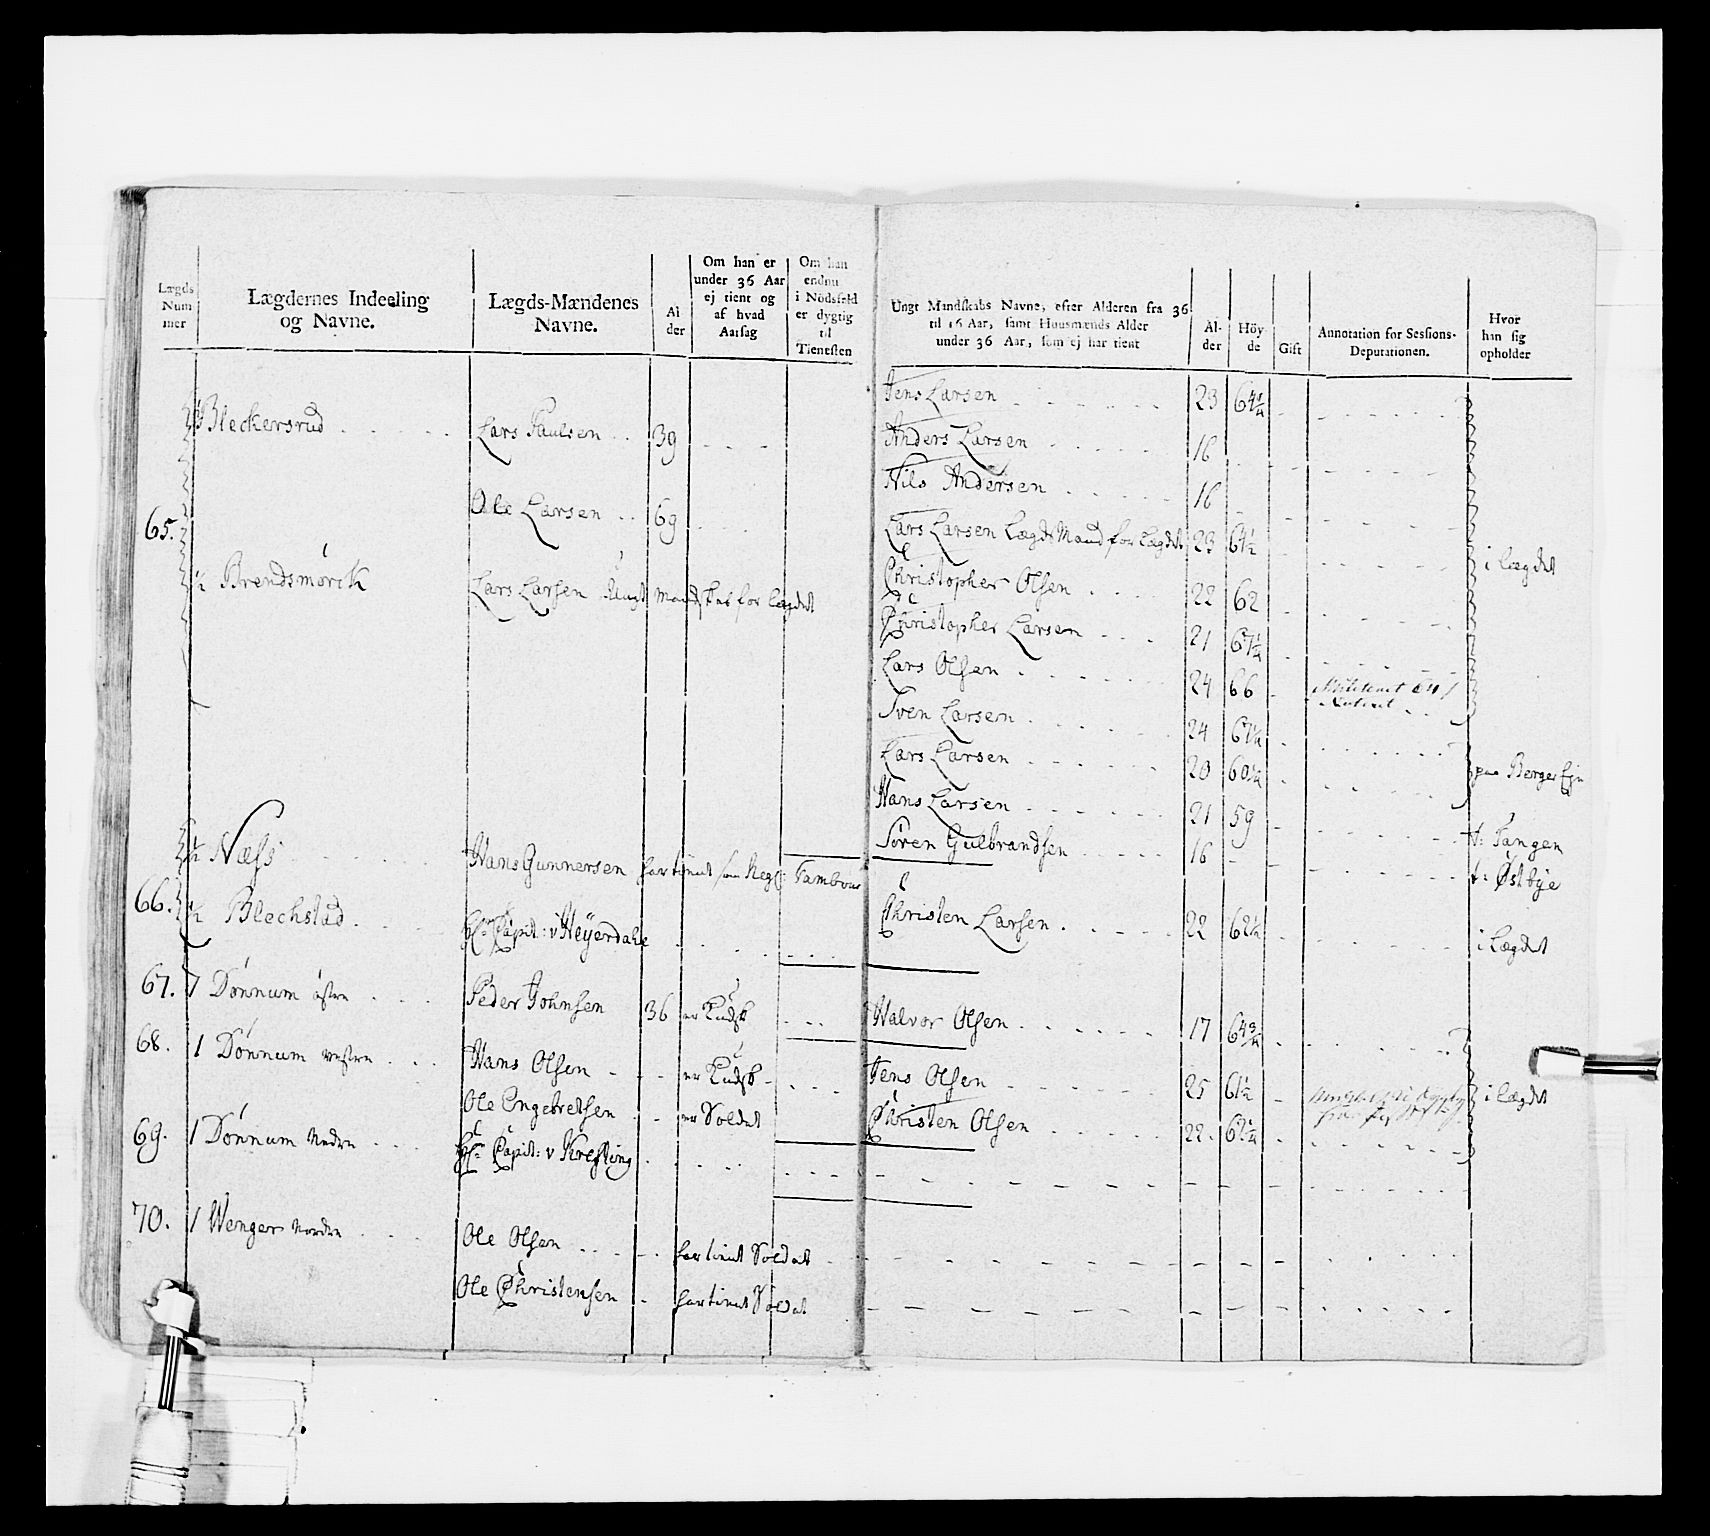 Lægds Num mer
Lægdernes Indeeling og Navne.
Lægds-Mændenes Navne.
Al der
Om han er under 36 Aar ej tient og af hvad Aarsag
Om han endnu i Nödsfald er dygtig til Tienesten
Ungt Mandskabs Navne, efter Alderen fra 36 til 16 Aar, samt Huusmænds Alder under 36 Aar, som ej har tient
Al- der
Höy- de
Gift
Annotation for Sessions- Deputationen.
Hvor han sig opholder
Jens Larsen 23
Bleckersrud Lars Paulsen 39
Anders Larsen 16
Nils Andersen 16
65. Ole Larsen 69
Lars Larsen Lægds Mand for Lægdet 23 64½ i Lægdet
½ Brendsmörck Lars Larsen Ungt Mandskab for Lægdet
Christopher Olsen 22 62
Christopher Larsen 21
Lars Olsen 24 66
Sven Larsen 24
Lars Larsen 20 paa Berger
Hans Larsen 21 59
½ Næss Hans Gunnersen har tient som Tambour
Sören Gulbrandsen 16 t: Tangen
t: Østbye
66. ½ Blechstad Hr Capit: v Heyerdahl
Christen Larsen 22 62½ i Lægdet
67. 1 Dönnum östre Peder Johnsen 36 er Kudsk
Halvor Olsen 17 64¾
68. 1 Dönnum vestre Hans Olsen er Kudsk
Jens Olsen 25 61½ i Lægdet
Ole Engebretsen er Soldat
Christen Olsen 22
69. 1 Dönnum Nedre Hr Capit: v Krefting
70. 1 Wenger Nordre Ole Olsen har tient Soldat
Ole Christensen har tient Soldat